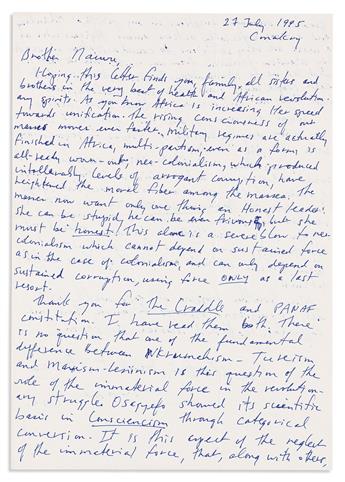 27 July 1995
Conakry
Brother
Hoping this letter finds you, family, all sister and
brothers in the very best of health and African revolution-
ary spirits. As you know Africa is increasing Her speed
towards unification. The rising consciousness of our
masses moves ever faster, military regimes are actually
finished in Africa, multi-partism, even as a form is
all-ready worn-out; neo-colonialism, which produced
intolerably levels of arrogant corruption, have
heightened the moral fiber among the masses. The
masses now want only one thing, an Honest leader.
She can be stupid, he can be even, but she
must be honest! This alone is a severe blow to neo-
colonialism which cannot depend on sustained force
as in the case of colonialism, and can only depend on
sustained corruption, using force ONLY as a last
resort.
Thank you for The Craddle and PANAF
constitution. I have read them both. There
is no question that one of the fundamental
difference between NKrumahism - Tureism
and Marxism-Leninism is this question of the
role of the immaterial force in the revolution-
ary struggle. Osagyefo showed its scientific
basis in Consciencism through categorical
conversion. It is this aspect of the neglect
of the immaterial force, that, along with others,